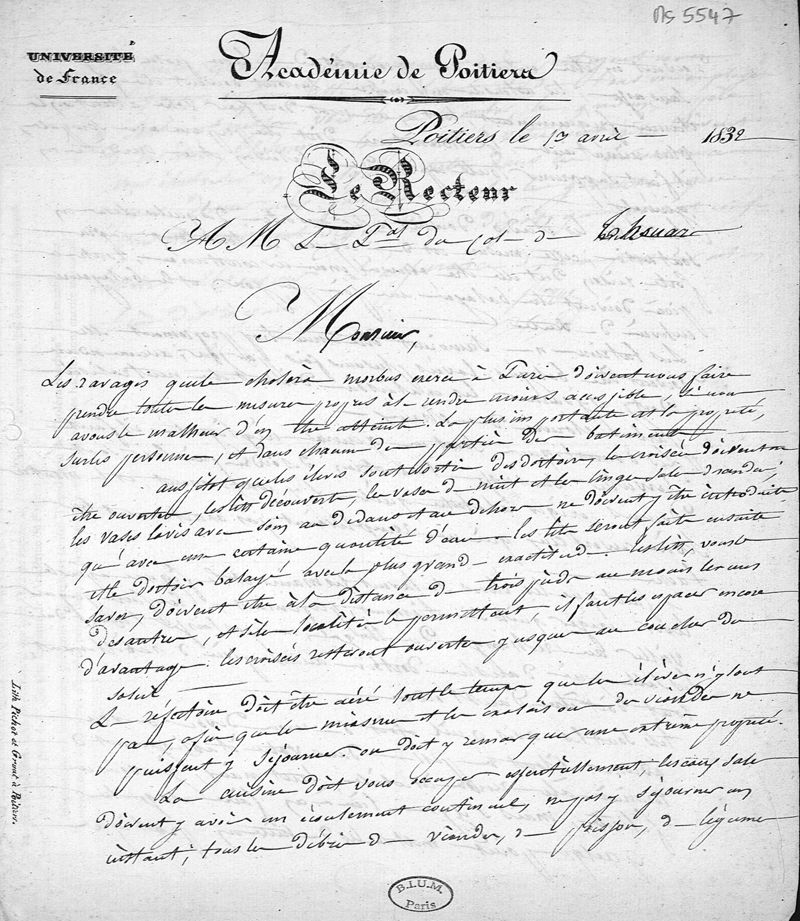 Ms 5547
UNIVERSITÉ
de France
Académie de Poitiers
Poitiers le 13 avril 1832
Le Recteur
A M Le Pal du Col. de Thouars
Monsieur,
Les ravages que le choléra morbus exerce à Paris doivent vous faire
prendre toutes les mesures propres à le rendre moins accessible, si nous
avons le malheur d'en être atteints. La plus importante est la propreté,
sur les personnes, et dans chacune des parties des batiments
aussitot que les élèves sont sortis des dortoirs, les croisées doivent en
être ouvertes, les lits découverts, les vases de nuit et le linge sale
les vases lavés avec soin au dedans et au dehors ne doivent y être introduits
qu'avec une certaine quantité d'eau. les lits seront faits ensuite
et le dortoir balayé avec la plus grande exactitude. les lits, vous le
savez, doivent être à la distance de trois pieds au moins les uns
des autres, et si la localité le permettent il faut les espacer encore
d'avantage. les croisées resteront ouvertes jusques au coucher du
soleil.
Le réfectoire doit être aéré tout le temps que les élèves n'y sont
pas, afin que les miasmes et les exalaisons des viandes ne
puissent y séjourner. on doit y remarquer une extrême propreté.
La cuisine doit vous occuper essentiellement, les eaux sales
doivent y avoir un écoulement continuel, ne pas y séjourner un
instant; tous les débris de viandes, de poisson, de légumes
Lith. Pichot et Grout à Poitiers.
B.I.U.M.
Paris